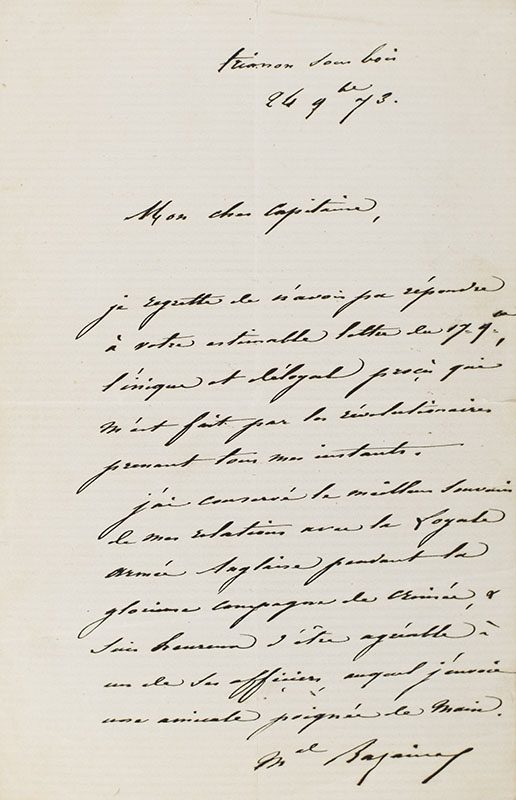 trianon sous bois
24 9bre 73.
Mon cher Capitaine,
je regrette de n'avoir pu répondre
à votre estimable lettre du 17 9bre,
l'inique et déloyal procès qui
m'est fait par les révolutionaires
prenant tous mes instants.
j'ai conservé le meilleur souvenir
de mes relations avec la Loyale
armée Anglaise pendant la
glorieuse campagne de Crimée, &
suis heureux d'être agréable à
un de ses officiers auquel j'envoie
une amicale poignée de main.
Mal Bazaine